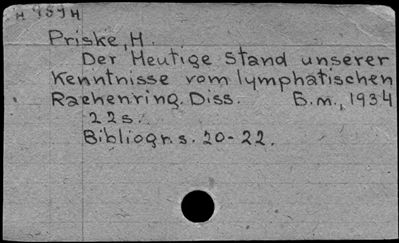 Priske, H.
Der Heutige Stand unserer
Kenntnisse vom lymphatischen
Rachenring. Diss. B.m., 1934
22s.
Bibliogr. s. 20-22.